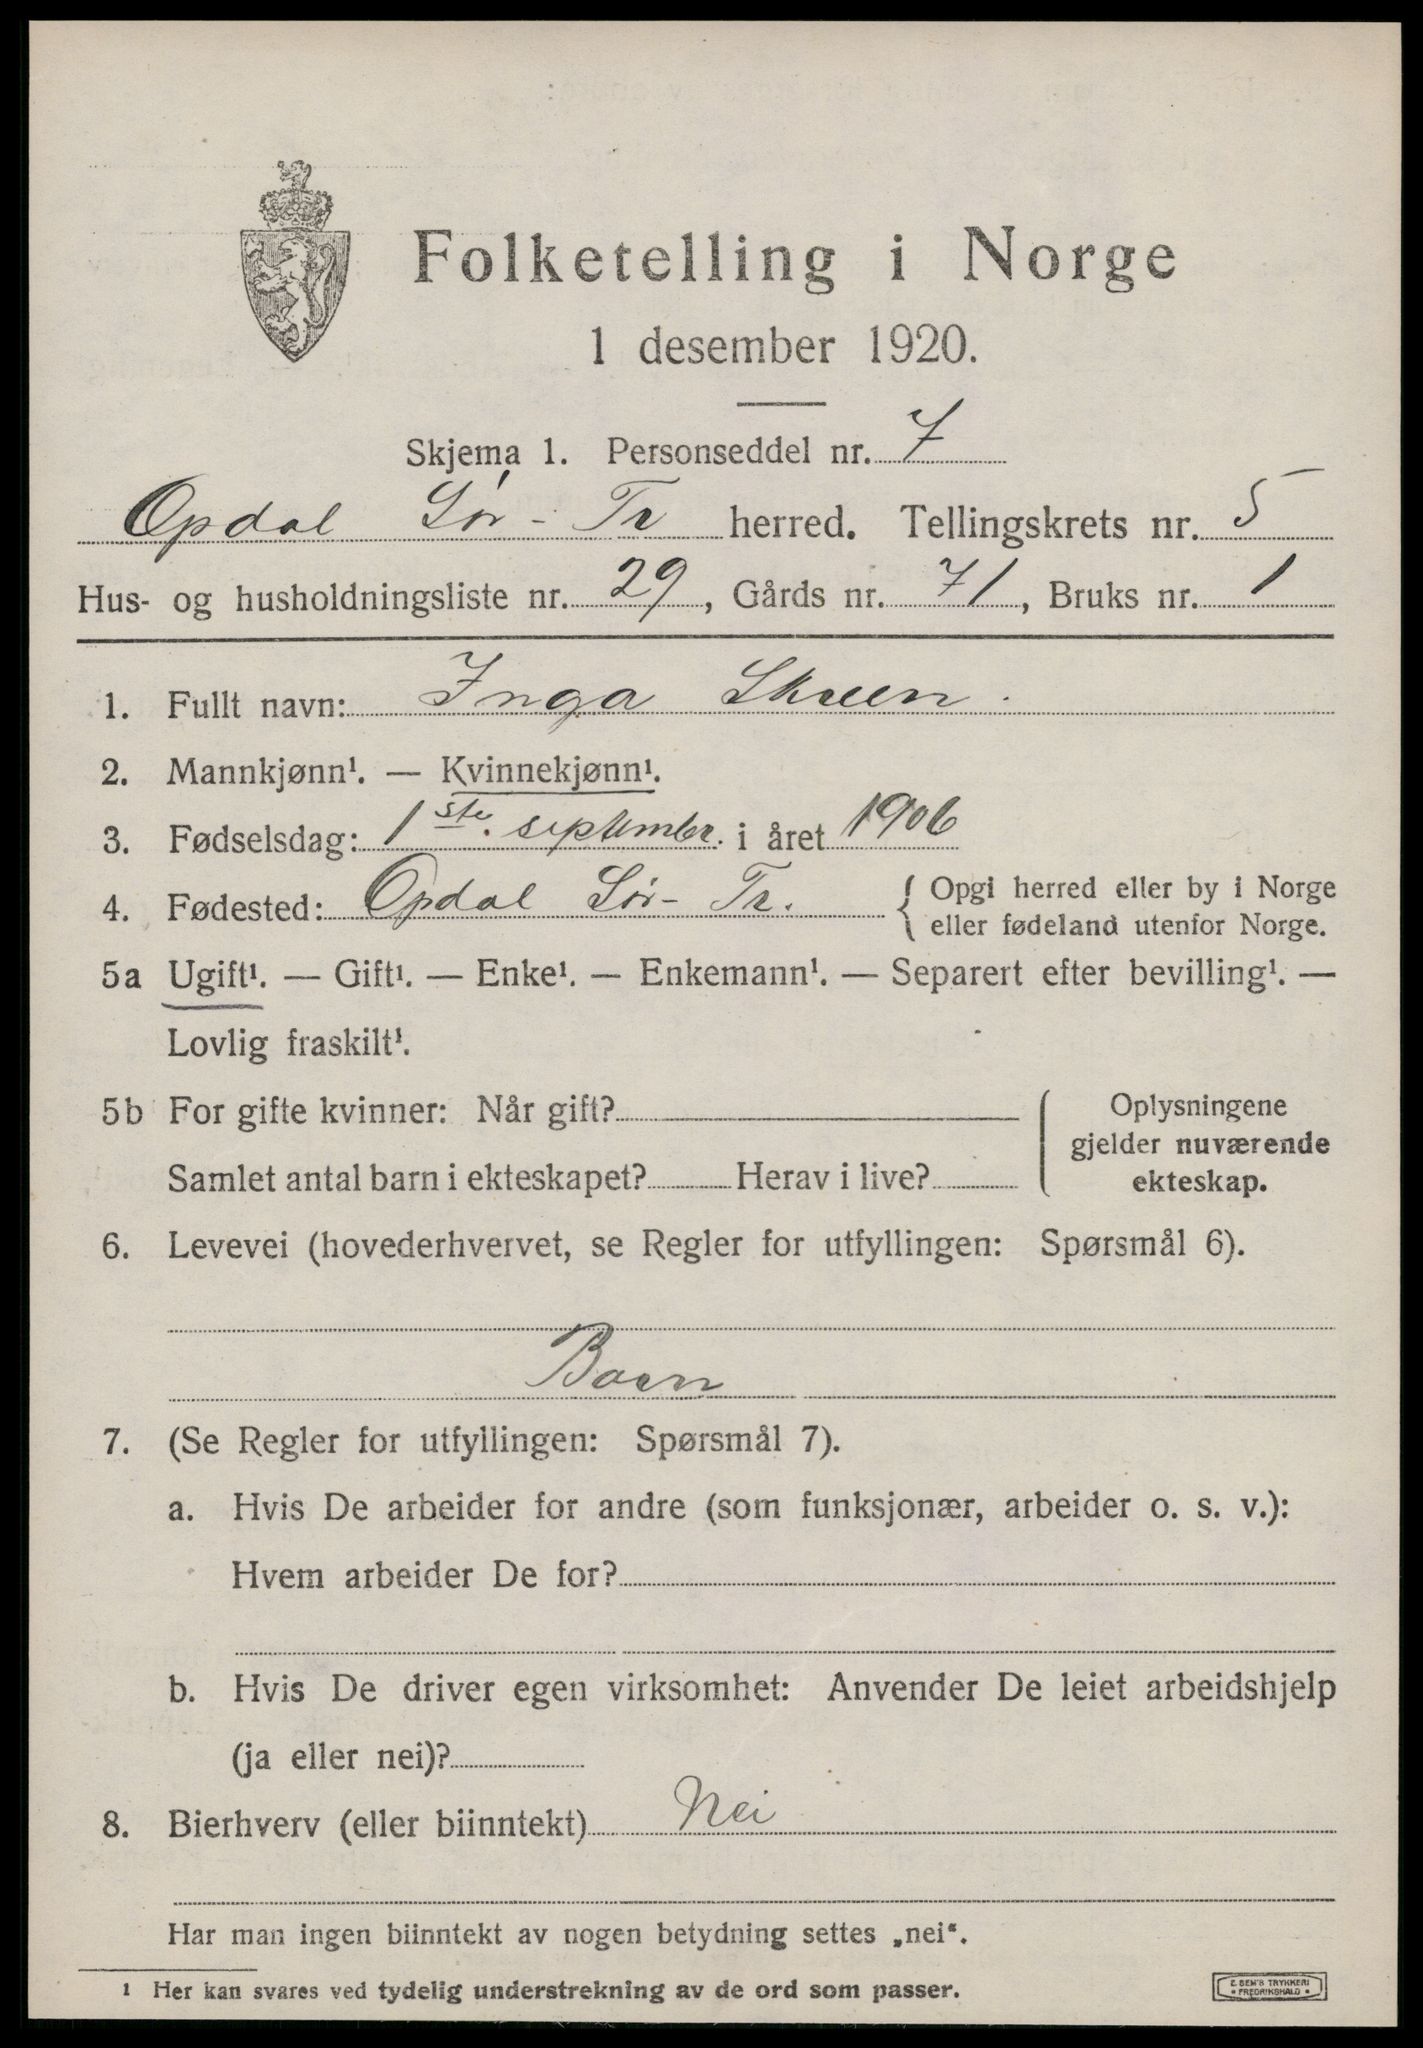 Folketelling i Norge
1 desember 1920.
Skjema 1. Personseddel nr. 7
Opdal Sør-Tr herred. Tellingskrets nr. 5
Hus- og husholdningsliste nr. 29, Gårds nr. 71, Bruks nr. 1
1. Fullt navn: Inga Skreen.
2. Mannkjønn¹. — Kvinnekjønn¹.
3. Fødselsdag: 1ste. september. i året 1906
4. Fødested: Opdal Sør-Tr. { Opgi herred eller by i Norge
eller fødeland utenfor Norge.
5a Ugift¹. — Gift¹. — Enke¹. — Enkemann¹. — Separert efter bevilling¹. —
Lovlig fraskilt¹.
5b For gifte kvinner: Når gift?
Samlet antal barn i ekteskapet? Herav i live?
Oplysningene
gjelder nuværende
ekteskap.
6. Levevei (hovederhvervet, se Regler for utfyllingen: Spørsmål 6).
Barn
7. (Se Regler for utfyllingen: Spørsmål 7).
a. Hvis De arbeider for andre (som funksjonær, arbeider o. s. v.):
Hvem arbeider De for?
b. Hvis De driver egen virksomhet: Anvender De leiet arbeidshjelp
(ja eller nei)?
8. Bierhverv (eller biinntekt) Nei
Har man ingen biinntekt av nogen betydning settes „nei“.
1 Her kan svares ved tydelig understrekning av de ord som passer.
E. SEM'S TRYKKERI
• FREDRIKSHALD •